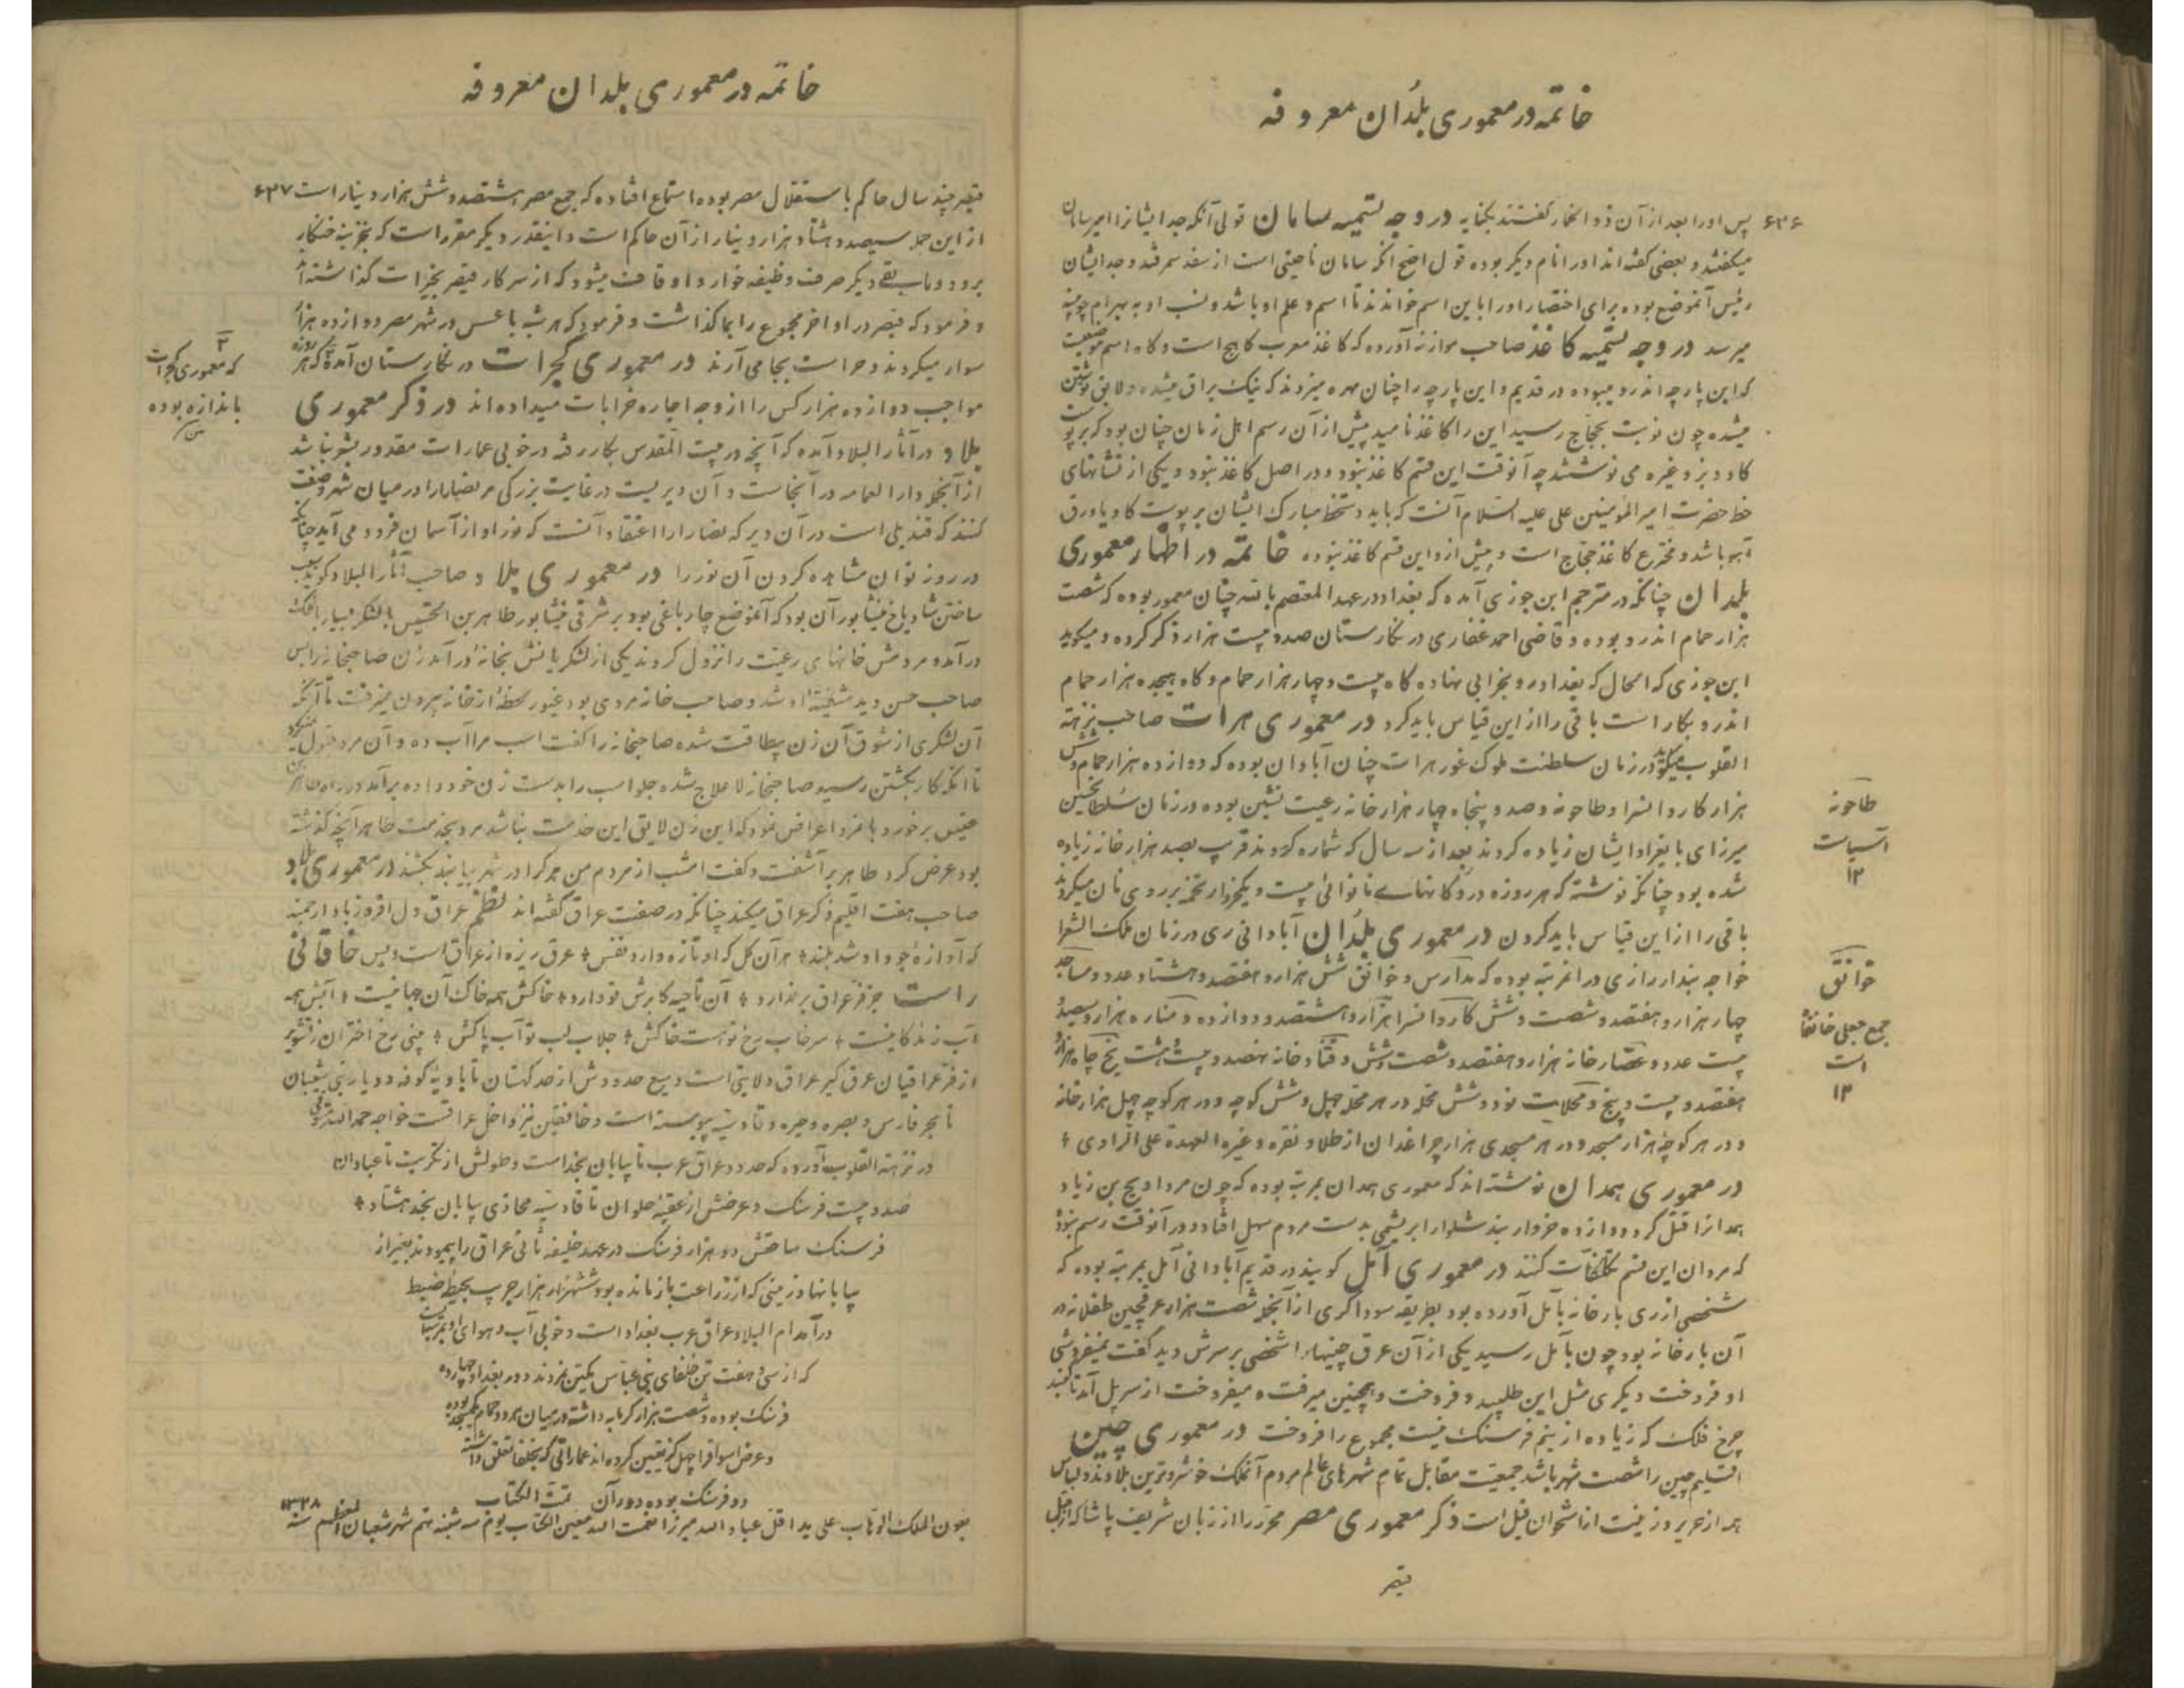 خاتمه در معموری بلدان معروفه
۶۳۶
پس او را بعد از آن ذو الخمار گفتند بکنایه در وجه تسمیه سامان قولی آنکه جد ایشانرا امیر سامان
میگفتند و بعضی گفته‌اند او را نام دیگر بوده قول اصح آنکه سامان ناحیتی است از سغد سمرقند و جد ایشان
رئیس آنموضع بوده برای اختصار او را باین اسم خواندند تا اسم و علم او باشد و نسب او به بهرام چوبینه
میرسد در وجه تسمیه کاغذ صاحب موازنه آورده که کاغذ معرب کاهج است و کاه اسم موضعیست
که این پارچه اندرو میبوده در قدیم و این پارچه را چنان مهره میزدند که نیک براق میشده و لایق نوشتن
میشده چون نوبت بحجاج رسید این را کاغذ نامید پیش از آن رسم اهل زمان چنان بود که بر پوست
گاو و بز و غیره می نوشتند چه آنوقت این قسم کاغذ نبود و در اصل کاغذ نبود و یکی از نشانهای
خط حضرت امیر المؤمنین علی علیه السلام آنست که باید دستخط مبارک ایشان بر پوست گاو یا ورق
آهو باشد و مخترع کاغذ حجاج است و پیش ازو این قسم کاغذ نبوده خاتمه در اظهار معموری
بلدان چنانکه در مترجم ابن جوزی آمده که بغداد در عهد المعتصم بالله چنان معمور بوده که شصت
هزار حمام اندرو بوده و قاضی احمد غفاری در نگارستان صد و بیست هزار ذکر کرده و میگوید
ابن جوزی که امحال که بغداد رو بخرابی نهاده گاه بیست و چهار هزار حمام و گاه هیجده هزار حمام
اندرو بکار است باقی را از این قیاس باید کرد در معموری هرات صاحب نزهة
القلوب میگوید در زمان سلطنت ملوک غور هرات چنان آبادان بوده که دوازده هزار حمام و شش
هزار کاروانسرا و طاحونه و صد و پنجاه چهار هزار خانه رعیت نشین بوده و در زمان سلطان حسین
میرزای بایقرا و ایشان زیاده کردند بعد از سه سال که شماره کردند قریب بصد هزار خانه زیاده
شده بود چنانکه نوشته که هر روزه در دکانهای نانوائی بیست و یکخروار تخمه بر روی نان میکردند
باقی را از این قیاس باید کردن در معموری بلدان آبادانی ری در زمان ملک الشعرا
خواجه بندار رازی در آن مرتبه بوده که مدارس و خوانق شش هزار و هفتصد و هشتاد عدد و مساجد
چهار هزار و هفتصد و شصت و شش کاروانسرا هزار و هشتصد و دوازده و مناره هزار و سیصد و
بیست عدد و عصار خانه هزار و هفتصد و شصت و شش و قناد خانه نهصد و بیست و هشت یخ چاه هزار و
هفتصد و بیست و پنج و محلات نود و شش محله در هر محله چهل و شش کوچه و در هر کوچه چهل هزار خانه
و در هر کوچه هزار مسجد و در هر مسجدی هزار چراغدان از طلا و نقره و غیره العهدة علی الراوی
در معموری همدان نوشته‌اند که معموری همدان بمرتبه بوده که چون مرداویج بن زیاد
همدانرا قتل کرد دوازده خروار بند شلوار ابریشمی بدست مردم سهل افتاد و در آنوقت رسم نبود
که مردان این قسم تکلفات کنند در معموری آمل گویند در قدیم آبادانی آمل بمرتبه بوده که
شخصی از ری بارخانه بآمل آورده بود بطریقه سوداگری از آنجمله شصت هزار عرقچین طفلانه در
آن بارخانه بود چون بآمل رسید یکی از آن عرق چینها را شخصی بر سرش دید گفت نمیفروشی
او فروخت دیگری مثل این طلبید و فروخت و همچنین میرفت و میفروخت از سر پل آمد تا گنبد
چرخ فلک که زیاده از نیم فرسنگ نیست مجموع را فروخت در معموری چین
اقلیم چین را شصت شهر باشد جمعیت مقابل تمام شهرهای عالم مردم آنملک خوشروترین بلادند و لباس
همه از حریر و زینت از استخوان فیل است ذکر معموری مصر محرز را از زبان شریف پاشا که از قبل
قیصر
طاحونه
آسیاست
۱۲
خوانق
جمع جعلی خانقاه
است
۱۲
خاتمه در معموری بلدان معروفه
۶۳۷
قیصر چند سال حاکم باستقلال مصر بوده استماع افتاده که جمع مصر هشتصد و شش هزار دینار است
از این جمله سیصد و هشتاد هزار دینار از آن حاکم است و اینقدر دیگر مقرر است که بخزینه خنکار
برود و مابقی دیگر صرف وظیفه خوار و اوقافت میشود که از سرکار قیصر بخیرات گذاشته‌اند
و فرمود که قیصر در اواخر مجموع را بما گذاشت و فرمود که هر شب با عسس در شهر مصر دوازده هزار
سوار میگردند و حراست بجا می آرند در معموری گجرات در نگارستان آمده که هر روزه
مواجب دوازده هزار کس را از وجه اجاره خرابات میداده‌اند در ذکر معموری
بلاد در آثار البلاد آمده که آنچه در بیت المقدس بکار رفته در خوبی عمارات مقدور بشر نباشد
از آنجمله دار العمامه در آنجاست و آن دیریست در غایت بزرگی مر نصارا را در میان شهر و صفت
کنند که قندیلی است در آن دیر که نصارا را اعتقاد آنست که نور او از آسمان فرود می آید چنانکه
در روز توان مشاهده کردن آن نور را در معموری بلاد صاحب آثار البلاد گوید سبب
ساختن شادیاخ نیشابور آن بود که آنموضع چارباغی بود بر شرقی نیشابور طاهر بن الحسین بالشکر بسیار بانجا
درآمد و مردمش خانهای رعیت را نزول کردند یکی از لشکریانش بخانه درآمد زن صاحبخانه را بس
صاحب حسن دید شیفته او شد و صاحب خانه مردی بود غیور لحظه از خانه بیرون نمیرفت تا آنکه
آن لشکری از شوق آن زن بیطاقت شده صاحبخانه را گفت اسب مرا آب ده و آن مرد قبول نمیکرد
تا آنکه کار بکشتن رسید صاحبخانه لاعلاج شده جلو اسب را بدست زن خود داده برآمد در راه طاهر
حسین برخورد بانمرد اعراض نمود که این زن لایق این خدمت نباشد مرد بخدمت طاهر آنچه گذشته
بود عرض کرد طاهر برآشفت و گفت امشب از مردم من هر کرا در شهر بیابند بکشند در معموری بلاد
صاحب هفت اقلیم ذکر عراق میکند چنانکه در صفت عراق گفته‌اند نظم عراق دل افروز باد ارجمند
که آوازه جود او شد بلند هر آن گل که او تازه دارد نفس عرق ریزه از عراق است و بس خاقانی
راست جز فر عراق بر ندارد آن ناحیه کابرش نو دارد خاکش همه خاک آن جهانیست آبش همه
آب زندگانیست سرخاب رخ توست خاکش جلاب لب تو آب پاکش چینی رخ اختران ز تشویر
از فر عراقیان عرق گیر عراق ولایتی است وسیع حدودش از حد کهستان تا بادیه کوفه و دیار بنی شیبان
تا بحر فارس و بصره و حیره و قادسیه پیوسته است و خانقین نیز داخل عراقست خواجه حمدالله مستوفی
در نزهة القلوب آورده که حدود عراق عرب تا بیابان نجد است و طولش از تکریت تا عبادان
صد و بیست فرسنگ و عرضش از عقبه حلوان تا قادسیه محاذی بیابان نجد هشتاد
فرسنگ مساحتش ده هزار فرسنگ در عهد خلیفه ثانی عراق را پیمودند بغیر از
بیابانها و زمینی که از زراعت بازمانده بود ششهزار هزار جریب بحیطه ضبط
درآمد ام البلاد عراق عرب بغداد است و خوبی آب و هوای او بمرتبه‌ایست
که از سی و هفت تن خلفای بنی عباس یکتن نمردند و دور بغداد چهارده
فرسنگ بوده و شصت هزار گرمابه داشته در میان هر دو حمام یکمسجد بوده
و عرض اسواق را چهل گز تعیین کرده‌اند عماراتی که بخلفا تعلق داشته
دو فرسنگ بوده دور آن تمت الکتاب
بعون الملک الوهاب علی ید اقل عباد الله میرزا نعمت الله معین الکتاب یوم سه شنبه نهم شهر شعبان المعظم سنه ۱۳۲۸
که معموری گجرات
باندازه بوده